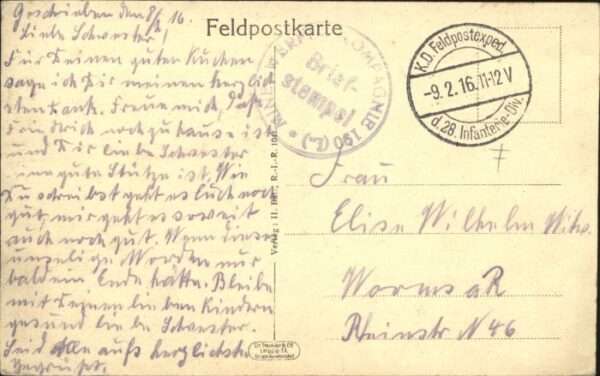 Geschrieben den 8/2 16.
Liebe Schwester!
Für Deinen guten Kuchen
sage ich Dir meinen herzlich-
sten Dank. Freue mich, daß
Friedrich noch zuhause ist
und Dir liebe Schwester
eine gute Stütze ist. Wie
Du schreibst geht es Euch noch
gut, mir geht es soweit
auch noch gut. Wenn dieses
unselige Morden nur
bald ein Ende hätte. Bleibe
mit Deinen lieben Kindern
gesund liebe Schwester.
Seid Alle aufs herzlichste
Gegrüßt.
Feldpostkarte
MINENWERFER KOMPAGNIE 190 (L.)
Brief-
stempel
K.D. Feldpostexped.
-9.2.16.11-12V
d. 28. Infanterie-Div.
Verlag: II. R.-I.-R.
Frau
Elise Wilhelm Witw.
Worms aR
Rheinstr N 46